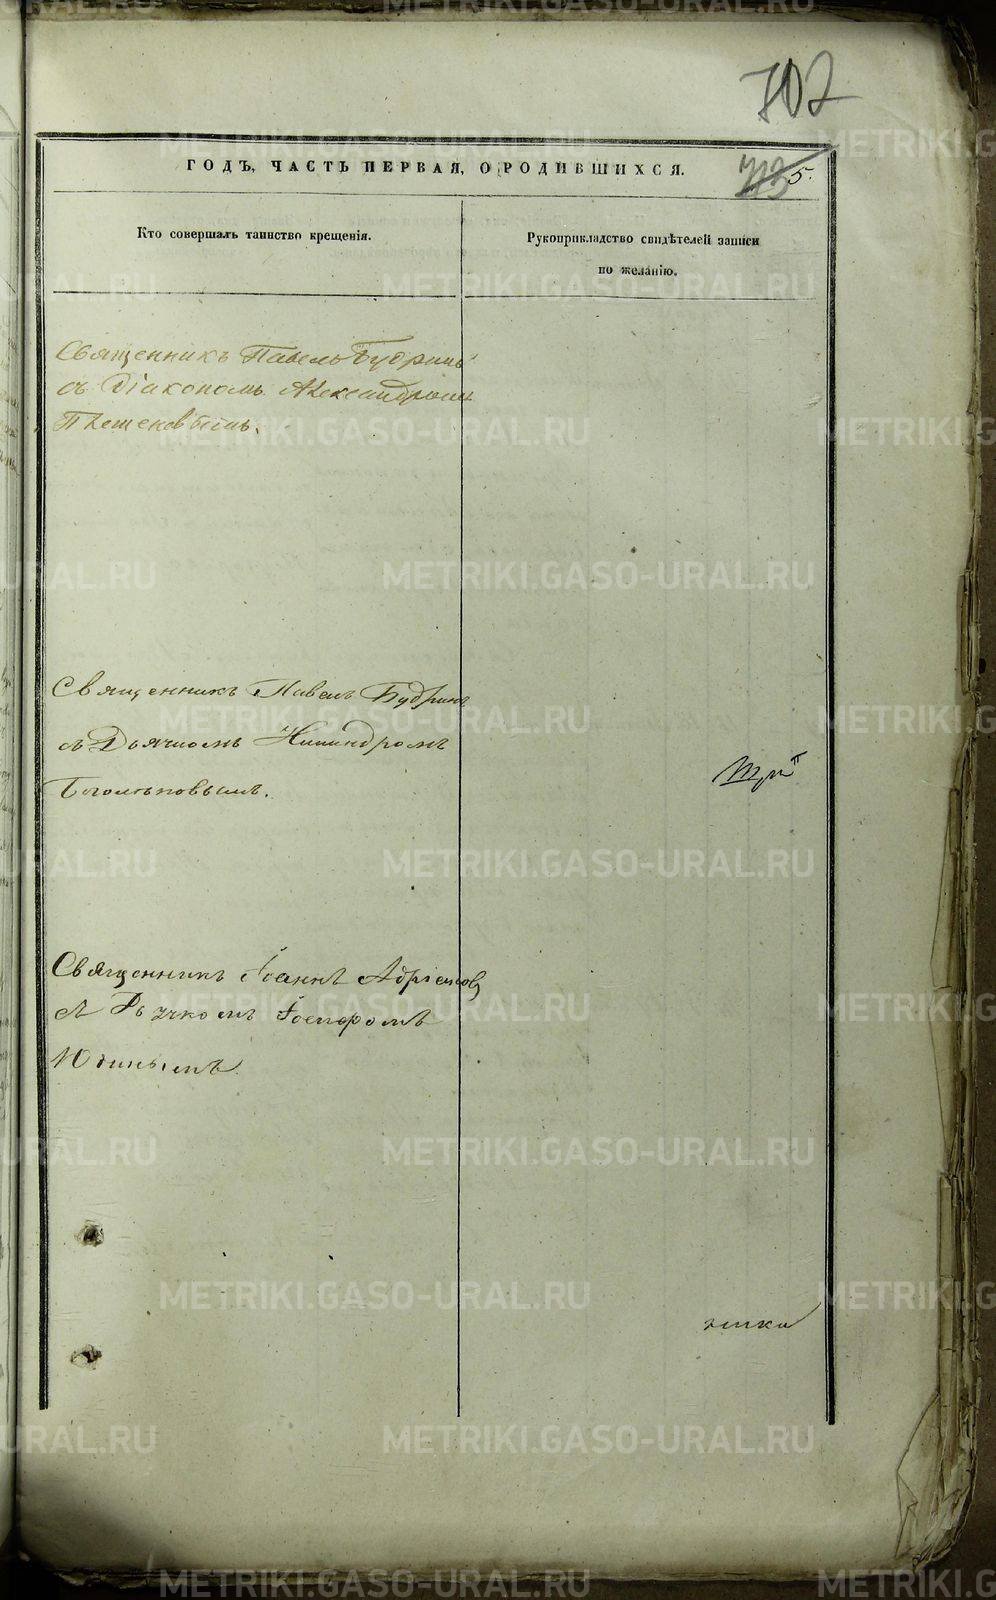 702
ГОДЪ, ЧАСТЬ ПЕРВАЯ, О РОДИВШИХСЯ.
713 5.
Кто совершалъ таинство крещенія.
Рукоприкладство свидѣтелей записи
по желанію.
Священникъ Павелъ Будринъ
съ Діакономъ Александромъ
Священникъ Павелъ Будринъ
съ Дьячкомъ Никандромъ
Священникъ Іоаннъ Адріановъ
съ Дьячкомъ Іосифомъ
Юдинымъ
METRIKI.GASO-URAL.RU